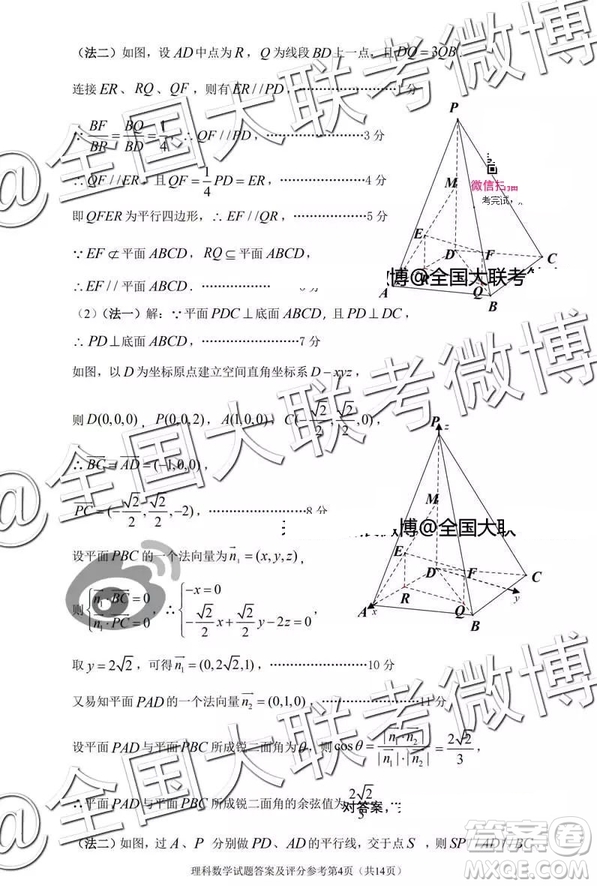 （法二）如图，设AD中点为R，Q为线段BD上一点，且DQ=3QB
连接ER、RQ、QF，则有ER//PD，………………………1分
∵BF/BP=BQ/BD=1/4，∴QF//PD，………………………3分
∴QF//ER，且QF=1/4PD=ER，………………………4分
即QFER为平行四边形，∴EF//QR，………………………5分
∵EF⊄平面ABCD，RQ⊆平面ABCD，
∴EF//平面ABCD．………………………6分
P
M
E
D
F
C
A
Q
B
微信扫
考完试，
博@全国大联考
（2）（法一）解：∵平面PDC⊥底面ABCD，且PD⊥DC，
∴PD⊥底面ABCD，………………………7分
如图，以D为坐标原点建立空间直角坐标系D−xyz，
则D(0,0,0)，P(0,0,2)，A(1,0,0)，C(−√2/2,√2/2,0)，
∴BC=AD=(−1,0,0)，
PC=(−√2/2,√2/2,−2)，………………………8分
设平面PBC的一个法向量为n₁=(x,y,z)，
则{n₁·BC=0 n₁·PC=0，∴{−x=0 −√2/2x+√2/2y−2z=0，
取y=2√2，可得n₁=(0,2√2,1)，………………………10分
又易知平面PAD的一个法向量n₂=(0,1,0)，………………………11分
设平面PAD与平面PBC所成锐二面角为θ，则cosθ=|n₁·n₂|/|n₁|·|n₂|=2√2/3，
∴平面PAD与平面PBC所成锐二面角的余弦值为2√2/3
对答案，
P
z
M
E
D
F
C
R
A
x
Q
B
y
博@全国大联
（法二）过A、P分别做PD、AD的平行线，交于点S，则SP//AD//BC
理科数学试题答案及评分参考第4页（共14页）
@全国大联考微博
@全国大联考微博
@全国大联考微博
答案圈
MXQE.COM